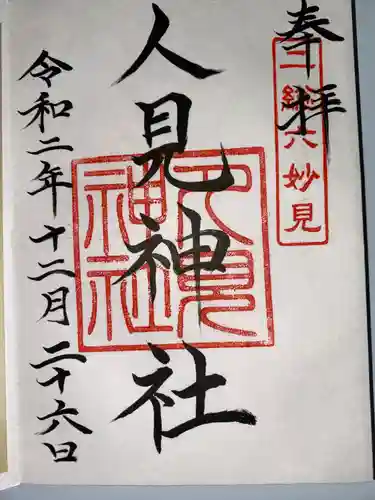 奉拝
上総六妙見
人見神社
人見神社
令和二年十二月二十六日